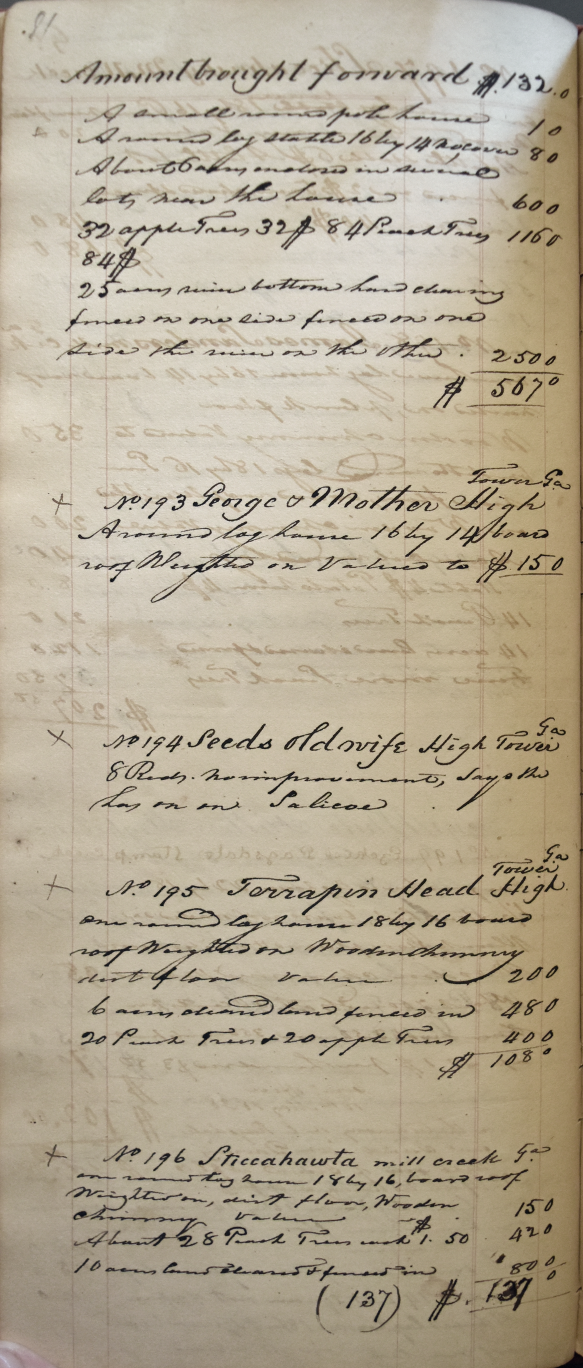 81.
Amount brought forward $132.0
A small round pole house 10
A round log stable 16 by 14 no cover 80
About 6 acres enclosed in several
lots near the house . 600
32 apple Trees 32$ 84 Peach Trees 1160
84$
25 acres river bottom hard clearing
fenced on one side fenced on one
side the river on the other . 2500
$ 5670
Tower Ga
+ No 193 George & Mother High
A round log house 16 by 14 board
roof Weighted on Valued to $150
Ga
x No 194 Seeds old wife High Tower
8 Reds. no improvement, Says she
has on on Salicoe .
Ga
Tower
+ No 195 Terrapin Head High
one round log house 18 by 16 board
roof Weighted on Wooden Chimney
dirt floor Value 200
6 acres cleared land fenced in 480
20 Peach Trees & 20 apple Trees 400
$ 1080
+ No 196 Sticcahawta mill creek Ga
one round log house 18 by 16, board roof
Weighted on, dirt floor, Wooden
Chimney Value 150
About 28 Peach Trees each $1.50 420
10 acres land cleared & fenced in " 800
(137) $. 1370